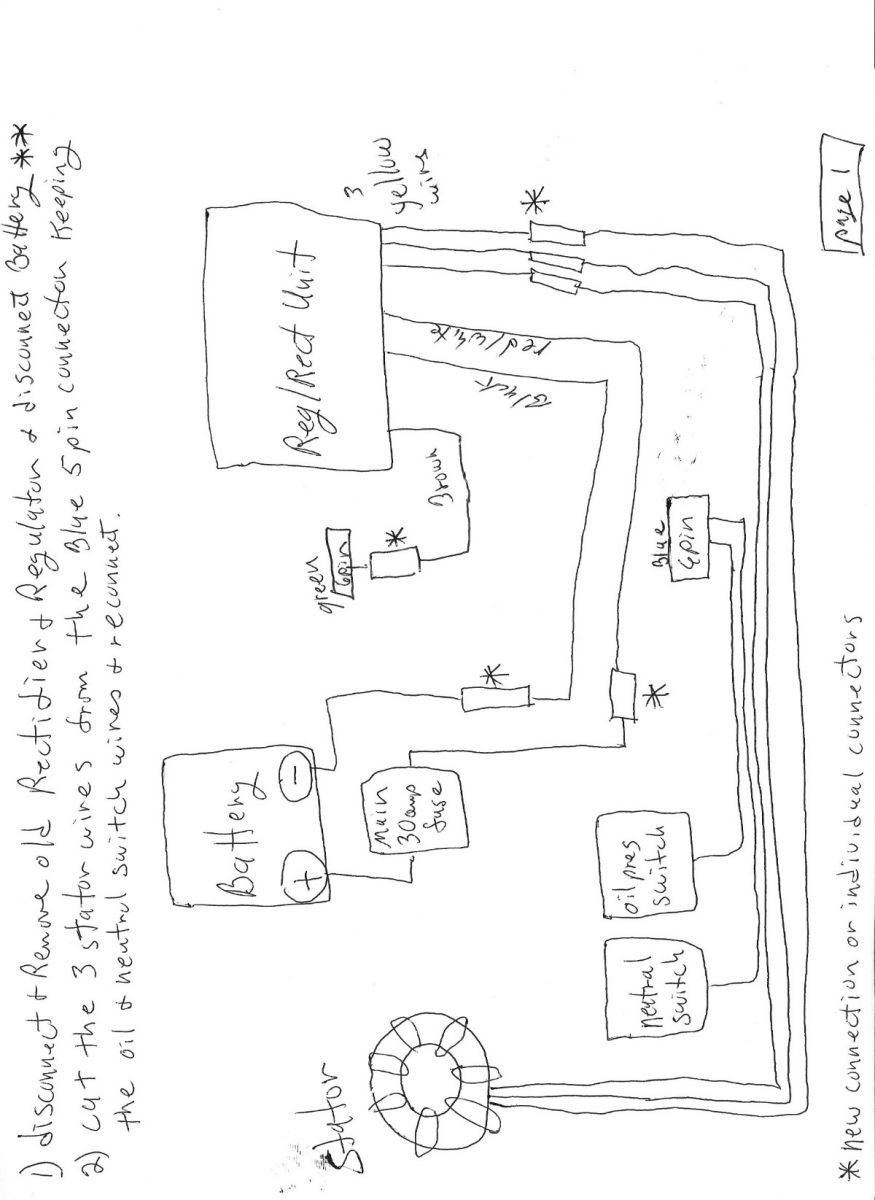 1) disconnect & Remove old Rectifier & Regulator & disconnect Battery **
2) cut the 3 stator wires from the Blue 5 pin connector Keeping
the oil & neutral switch wires & reconnect.
3
yellow
wires
*
Reg/Rect Unit
red/white
Black
Brown
green
6pin
*
Blue
6pin
*
*
Battery
+
-
Main
30 amp
fuse
oil pres
switch
neutral
switch
Stator
page 1
* new connection or individual connectors